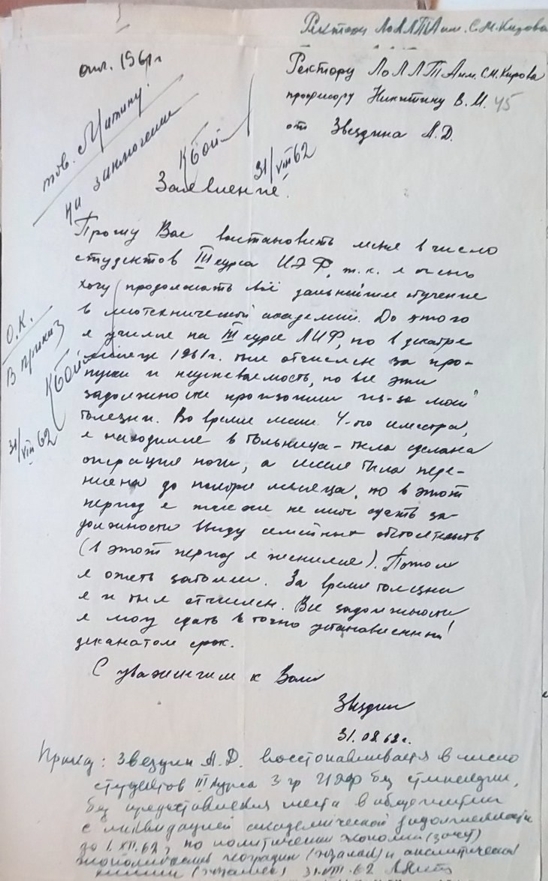 Ректору ЛоЛЛТА им. С.М. Кирова
отч. 1961 г
Ректору ЛоЛЛТА им. С.М. Кирова
профессору Никитину В. И. 45
от Звездина А.Д.
тов. Митину
на заключение
31/VIII 62
Заявление.
Прошу Вас востановить меня в число
студентов III курса ИЭФ, т.к. я очень
хочу продолжать всё дальнейшее обучение
в лесотехнической академии. До этого
я учился на III курсе ЛИФ, но в декабре
месяце 1961г. был отчислен за про-
пуски и неуспеваемость, но все эти
задолжности произошли из-за моей
болезни. Во время 4-го семестра,
я находился в больнице - была сделана
операция ноги, а сессия была пере-
несена до месяца, но в этот
период я тоже не мог сдать за-
должности ввиду семейных обстоятельств
(в этот период я женился). Потом
я опять заболел. За время болезни
я и был отчислен. Все задолжности
я могу сдать в точно установленный
деканатом срок.
С уважением к Вам
Звездин
31.08.62г.
О.К.
В приказ
31/VIII 62
Приказ: Звездин А.Д. восстанавливается в число
студентов III курса 3 гр ИЭФ без стипендии,
без предоставления места в общежитии
с ликвидацией академической задолженности
до 1.XII.62г по политической экономии (зачет)
экономической географии (экзамен) и аналитической
химии (экзамен) 31.VIII.62